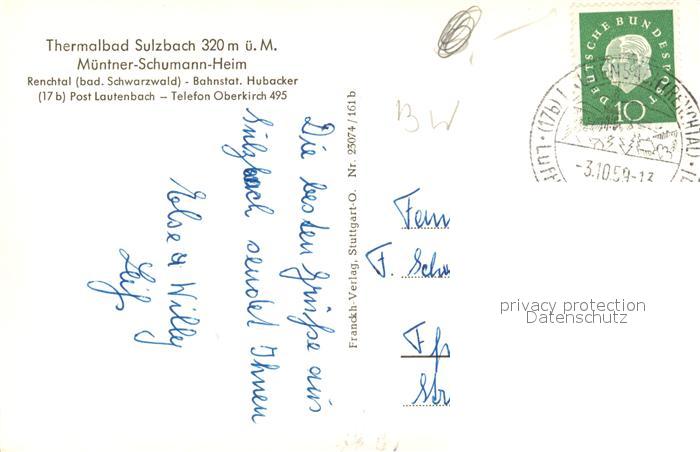 Thermalbad Sulzbach 320 m ü. M.
Müntner-Schumann-Heim
Renchtal (bad. Schwarzwald) - Bahnstat. Hubacker
(17 b) Post Lautenbach – Telefon Oberkirch 495
Die besten Grüße aus
Sulzbach sendet Ihnen
Else & Willy
Franckh-Verlag, Stuttgart-O. Nr. 23074/161 b
BW
DEUTSCHE BUNDESPOST
10
(17b)
(RENCHTAL)
LUFT
-3.10.59-13
F. Schu
Str
privacy protection
Datenschutz